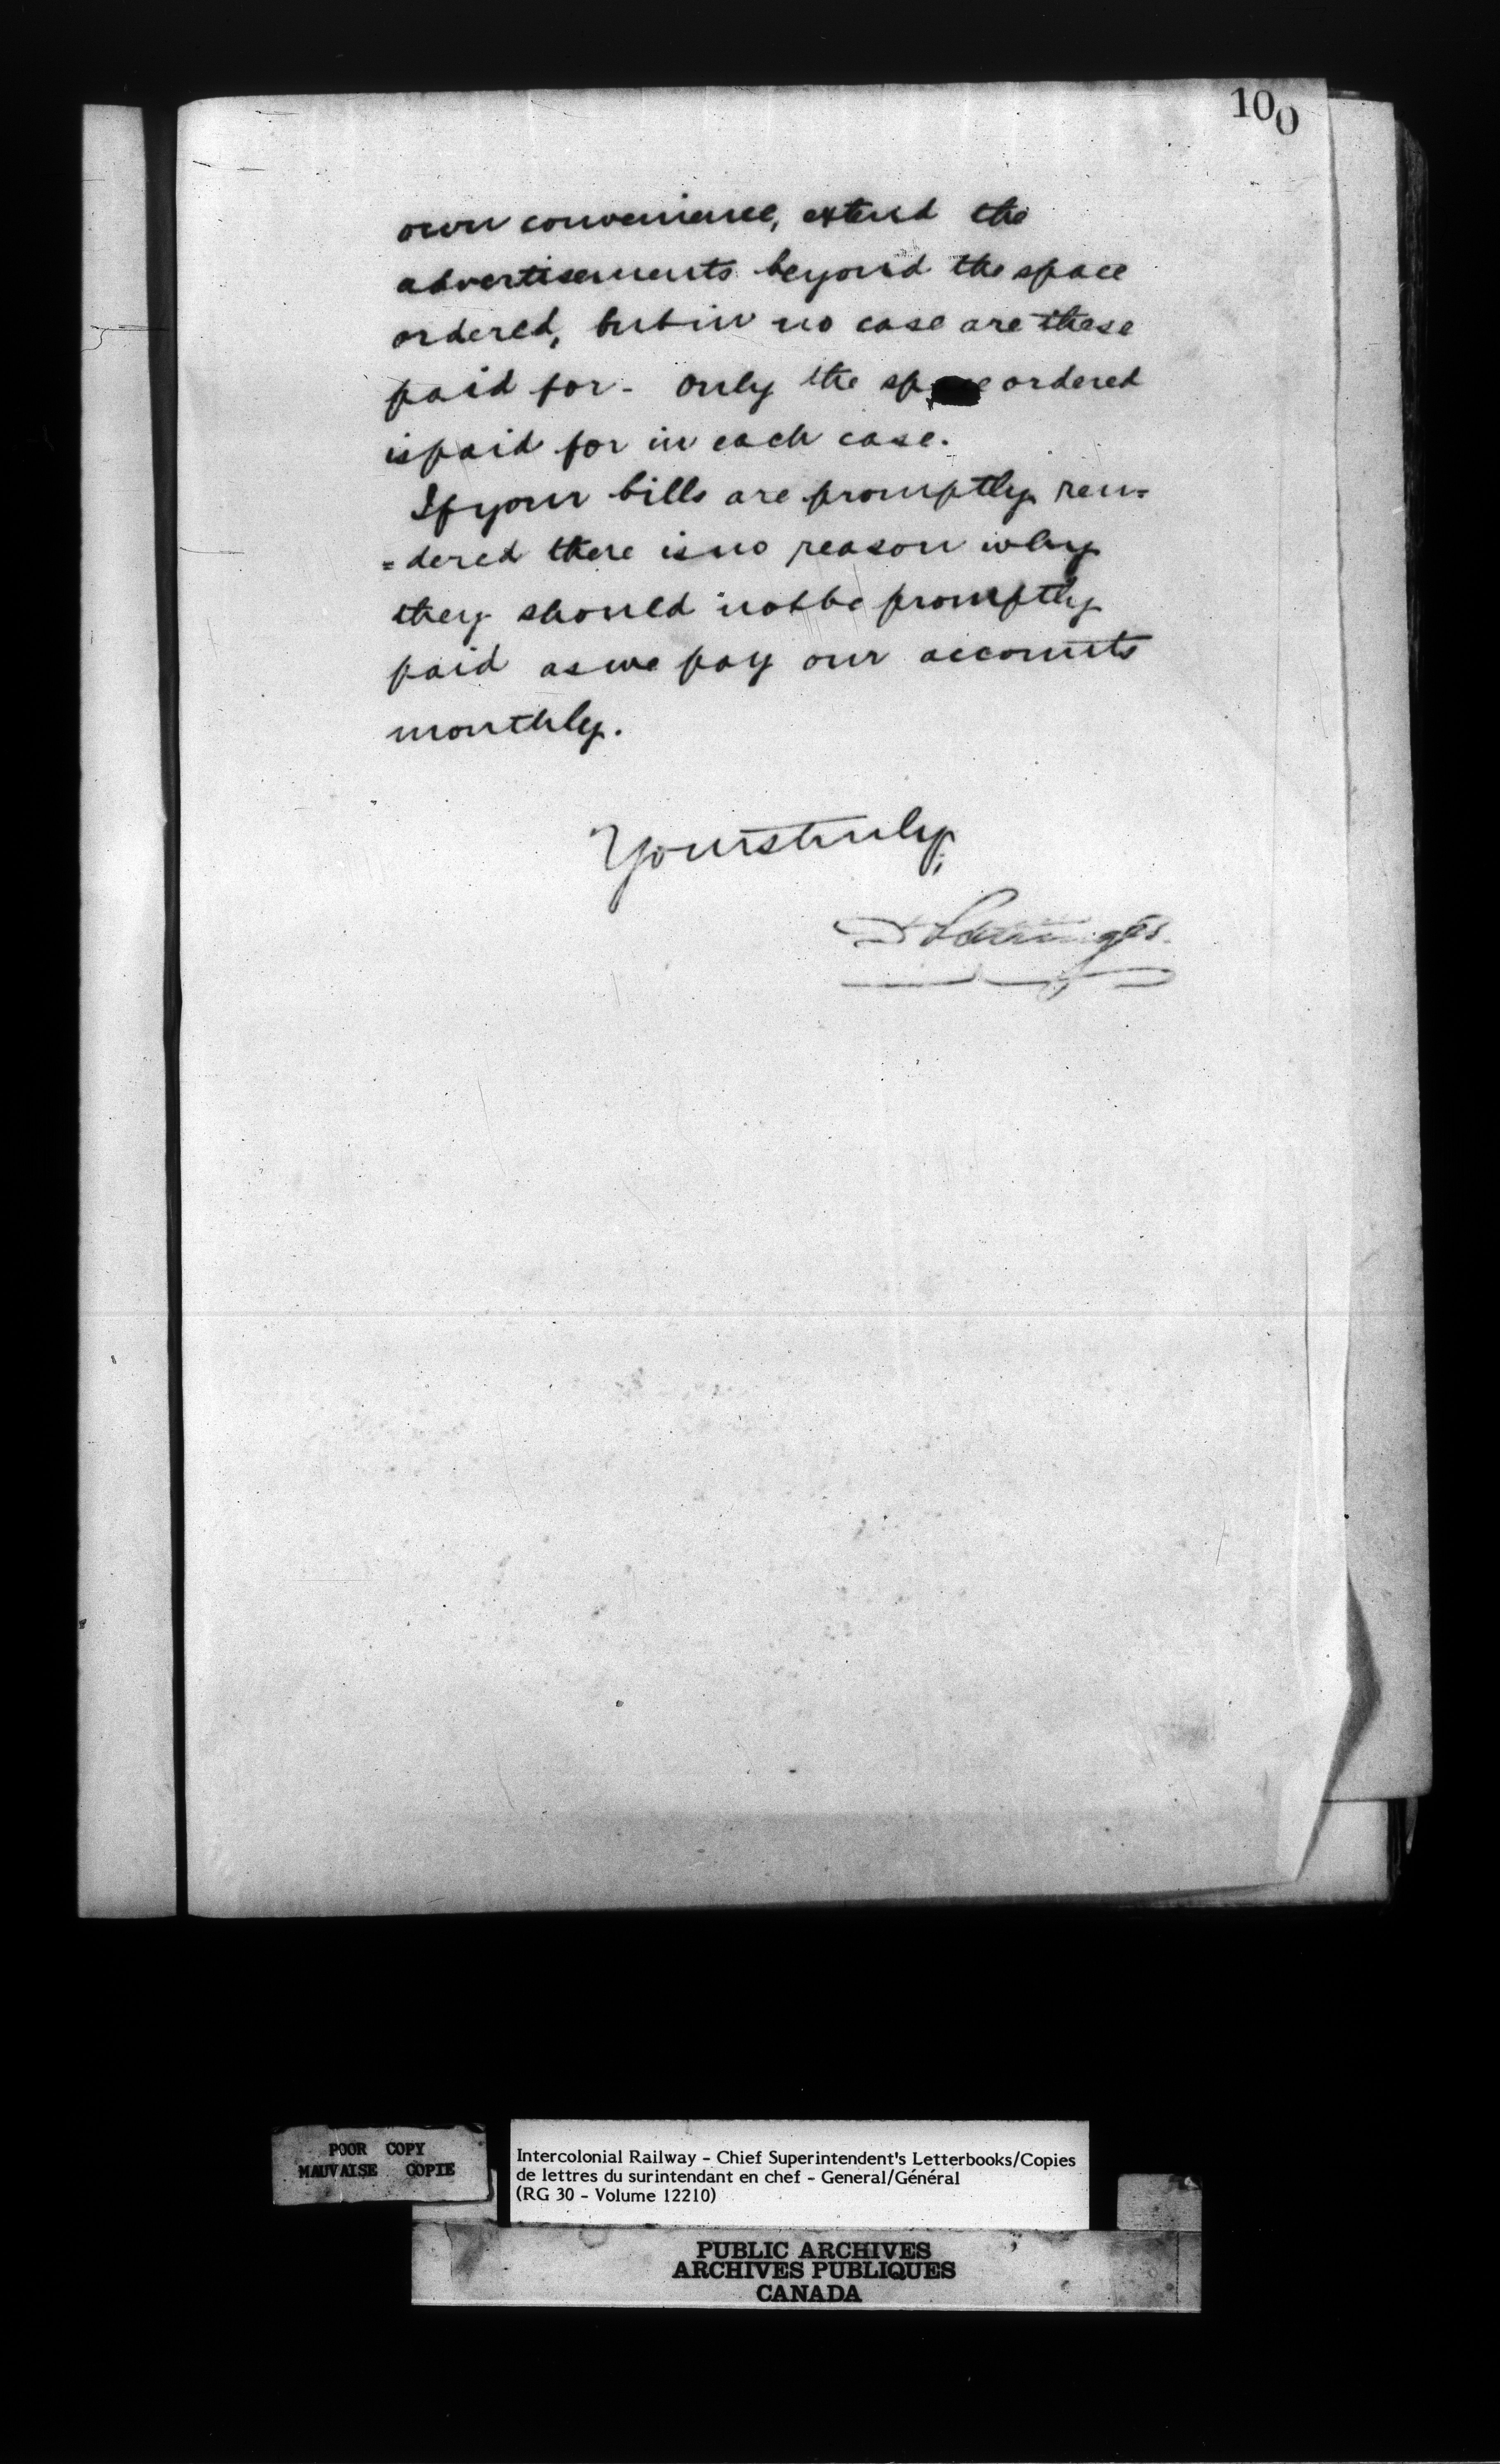 100
own convenience, extend the
advertisements beyond the space
ordered, but in no case are these
paid for - only the space ordered
is paid for in each case.
If your bills are promptly ren=
=dered there is no reason why
they should not be promptly
paid as we pay our accounts
monthly.
Yours truly,
POOR COPY
MAUVAISE COPIE
Intercolonial Railway - Chief Superintendent's Letterbooks/Copies
de lettres du surintendant en chef - General/Général
(RG 30 - Volume 12210)
PUBLIC ARCHIVES
ARCHIVES PUBLIQUES
CANADA